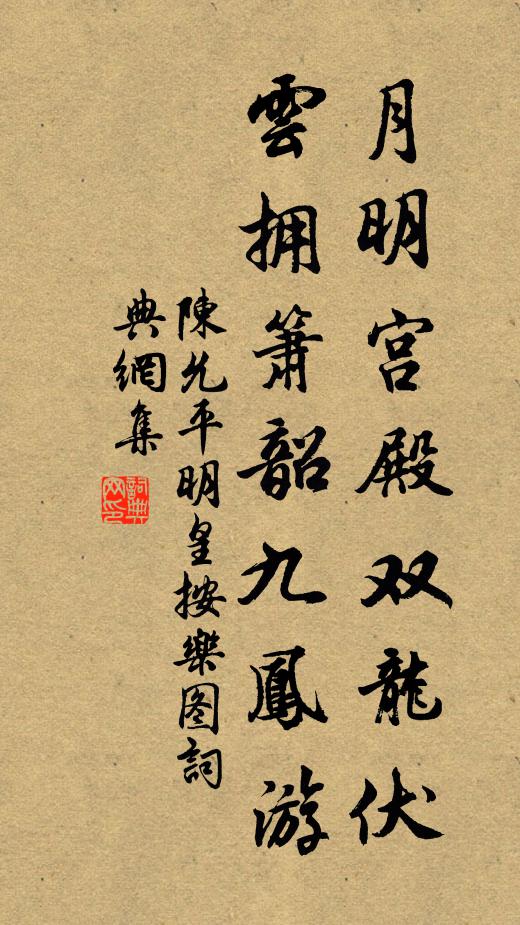 月明宫殿双龍伏
雲拥箫韶九鳳游
陳允平明皇按樂图詞
典網集
詞典網印